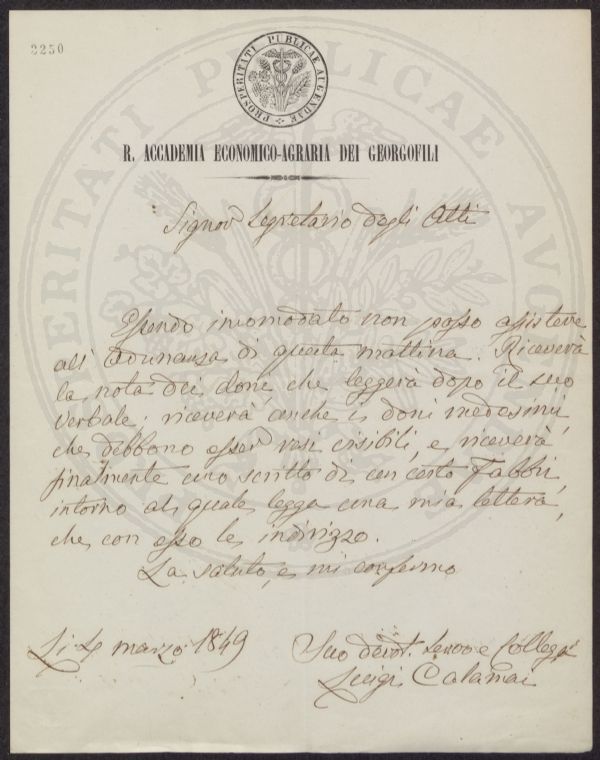 2250
PROSPERITATI PUBLICAE AUGENDAE
R. ACCADEMIA ECONOMICO-AGRARIA DEI GEORGOFILI
Signor Segretario degli Atti
Essendo incomodato non posso assistere
all'Adunanza di questa mattina. Riceverà
la nota dei doni, che leggerà dopo il suo
verbale; riceverà anche i doni medesimi,
che debbono esser resi visibili, e riceverà
finalmente uno scritto di un certo Fabbri,
intorno al quale legga una mia lettera,
che con esso le indirizzo.
La saluto, e mi confermo
Li 4 marzo 1849
Suo devot. servo e Collega
Luigi Calamai